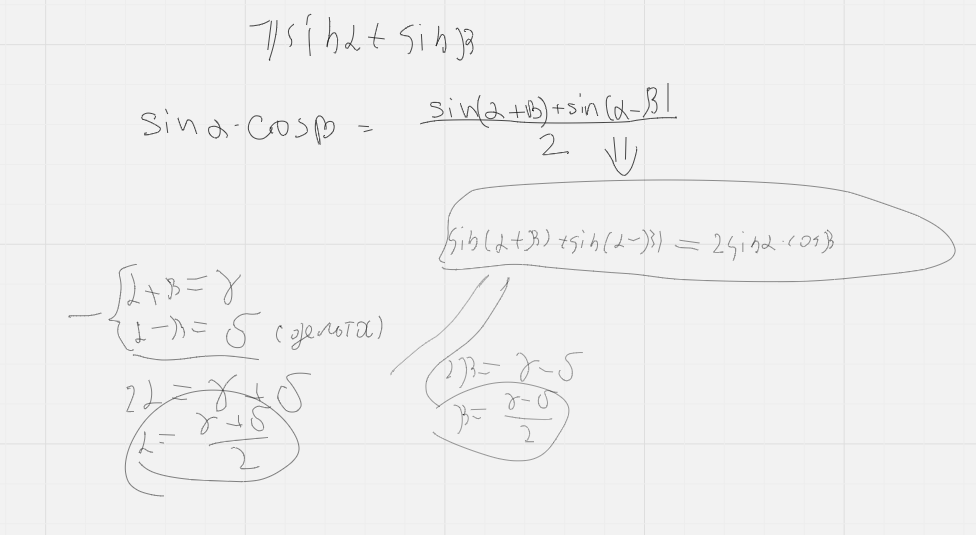 7) sinα + sinβ
sinα · cosβ = (sin(α+β)+sin(α-β))/2
⇓
sin(α+β)+sin(α-β) = 2sinα·cosβ
- { α+β = γ
α-β = δ
2α = γ + δ
α = (γ+δ)/2
2β = γ - δ
β = (γ-δ)/2